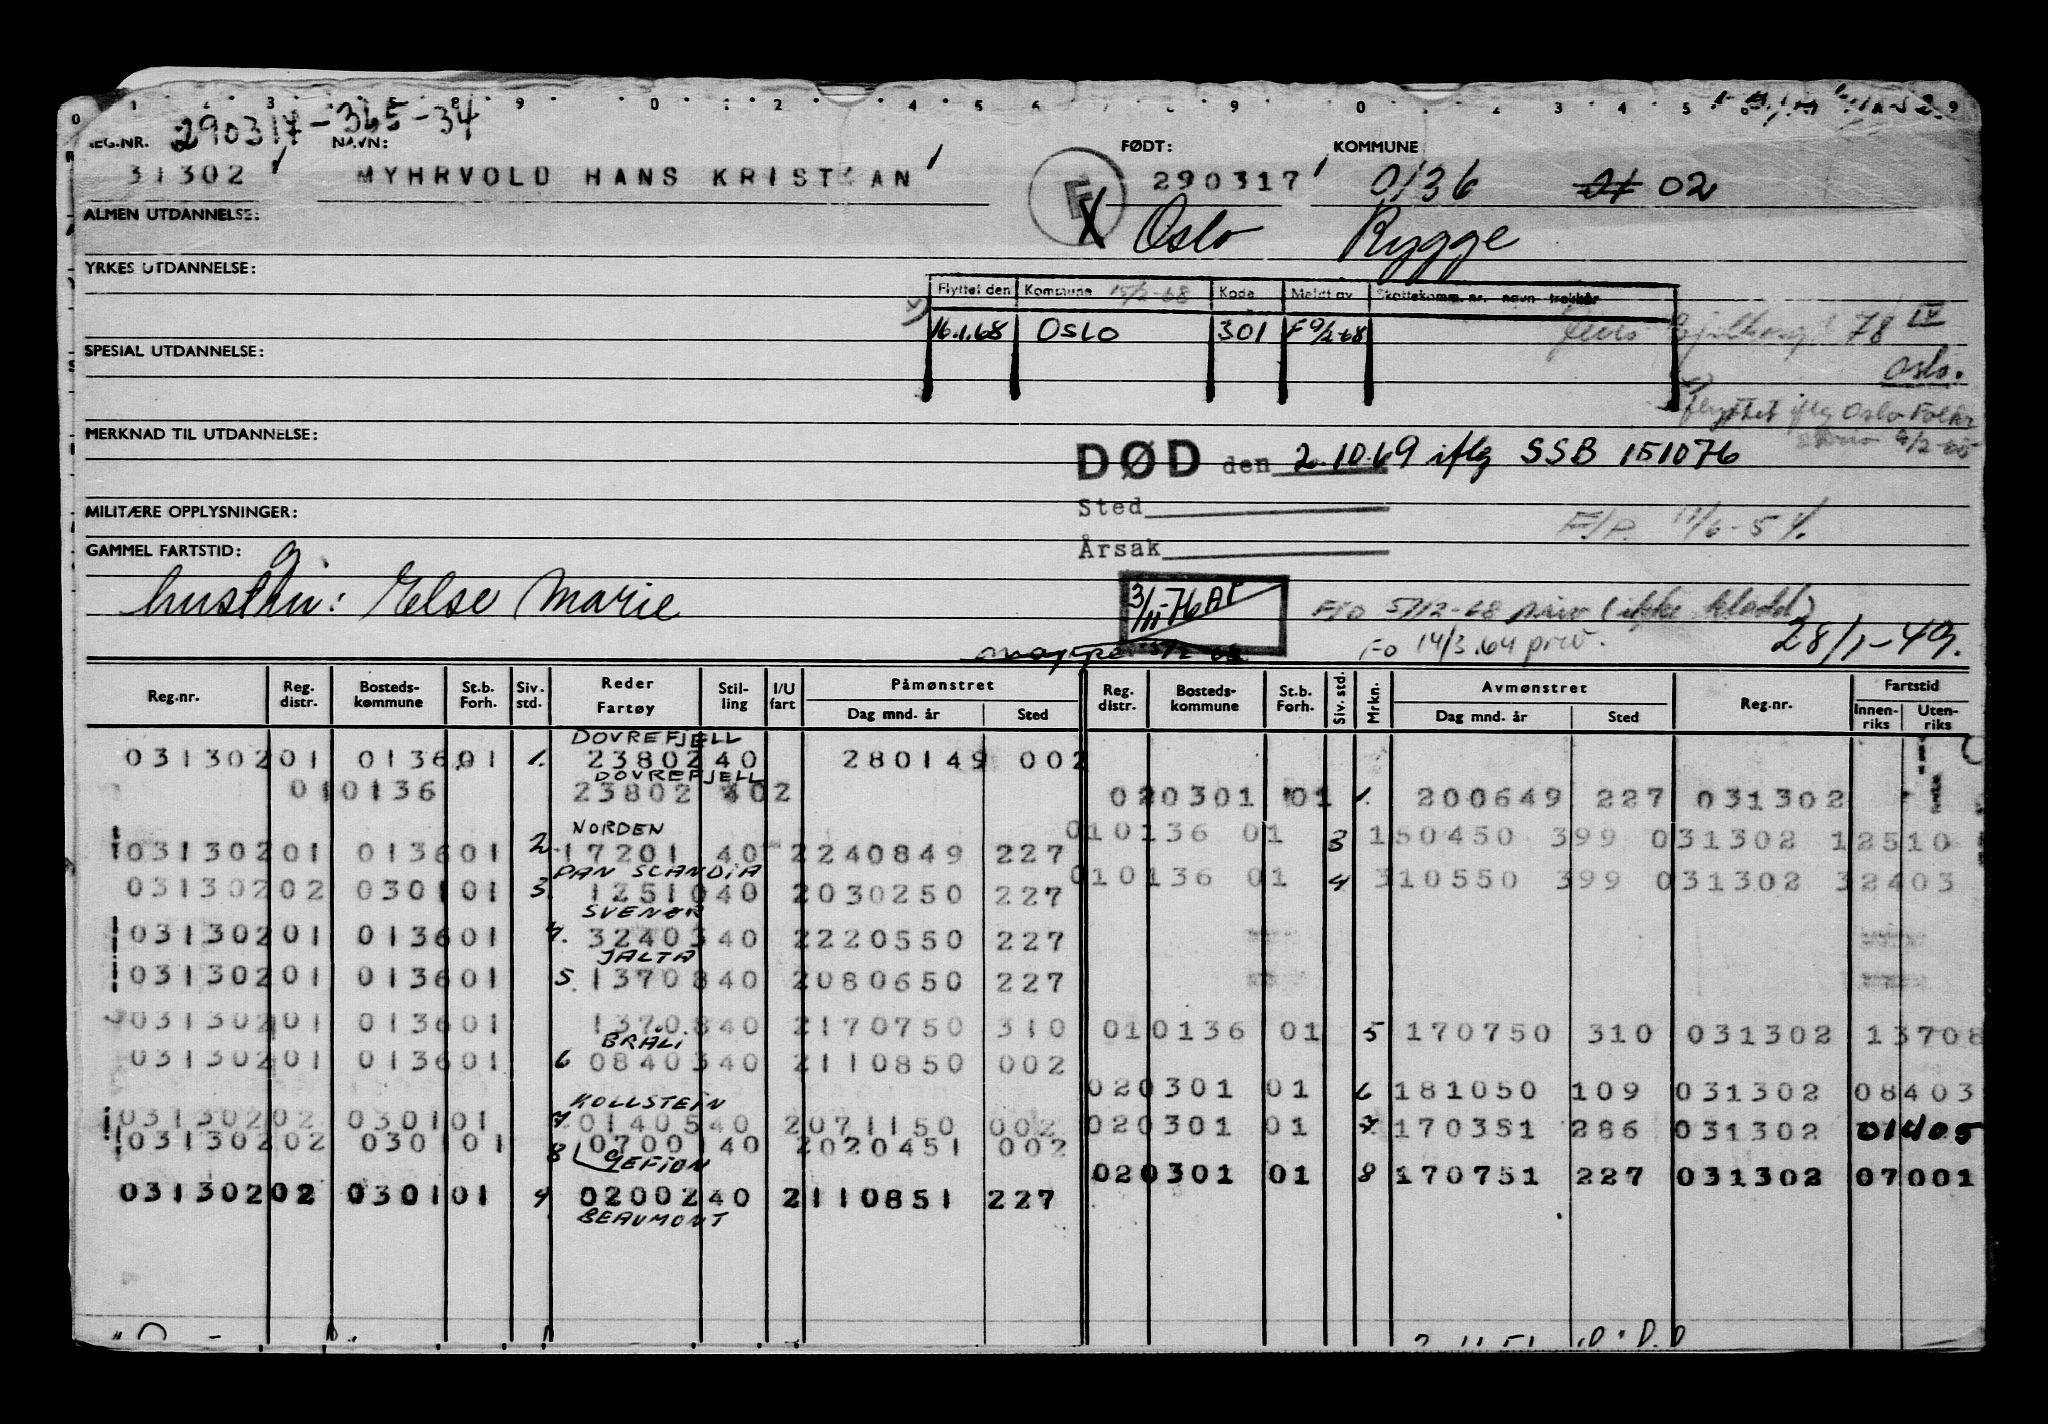 290317-365-34
REG.NR. NAVN: FØDT: KOMMUNE
31302 MYHRVOLD HANS KRISTIAN 290317 0136 02
F
X Oslo Rygge
ALMEN UTDANNELSE:
YRKES UTDANNELSE:
Flyttet den Kommune 15/2-68 Kode Meldt av Skattekomm. nr. navn trekkår
16.1.68 OSLO 301 F 9/2-68
78 IV
Oslo.
flyttet iflg Oslo Folkr
SPESIAL UTDANNELSE:
MERKNAD TIL UTDANNELSE:
DØD den 2.10.69 iflg SSB 151076
Sted
Årsak
MILITÆRE OPPLYSNINGER:
GAMMEL FARTSTID:
hustru: Else Marie
3/11-76
Fo 5/12-68 priv (ikke kladd)
Fo 14/3.64 priv.
28/1-49.
Reg.nr. Reg. distr. Bosteds-kommune St.b. Forh. Siv. std. Reder Fartøy Stil-ling I/U fart Påmønstret Dag mnd. år Sted Reg. distr. Bosteds-kommune St.b. Forh. Siv. std. Mrkn. Avmønstret Dag mnd. år Sted Reg.nr. Fartstid Innen-riks Uten-riks
DOVREFJELL
031302 01 0136 01 1. 23802 40 280149 002
DOVREFJELL
01 0136 23802 402 02 0301 01 1. 200649 227 031302
NORDEN
01 0136 01 3 150450 399 031302 12510
031302 01 0136 01 2. 17201 40 2 240849 227
PAN SCANDIA
01 0136 01 4 310550 399 031302 32403
031302 02 0301 01 3. 12510 40 2 030250 227
SVENØR
031302 01 0136 01 4. 32403 40 2 220550 227
JALTA
031302 01 0136 01 5. 13708 40 2 080650 227
031302 01 0136 01 13708 40 2 170750 310 01 0136 01 5 170750 310 031302 13708
BRALI
031302 01 0136 01 6 08403 40 2 110850 002
02 0301 01 6 181050 109 031302 08403
KOLLSTEIN
031302 02 0301 01 7 01405 40 2 071150 002 02 0301 01 7 170351 286 031302 01405
031302 02 0301 01 8 07001 40 2 020451 002
GEFION
02 0301 01 8 170751 227 031302 07001
031302 02 0301 01 9 02002 40 2 110851 227
BEAUMONT